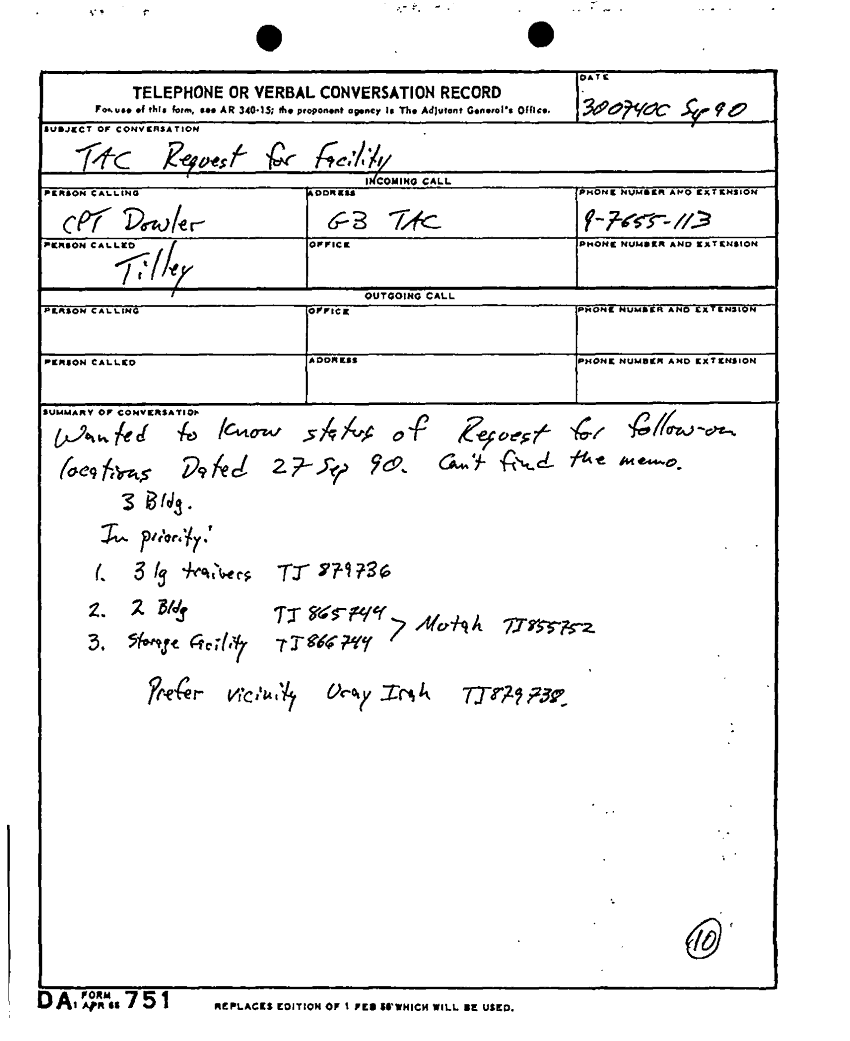 TELEPHONE OR VERBAL CONVERSATION RECORD
For use of this form, see AR 340-15; the proponent agency is The Adjutant General's Office.
DATE
300740C Sep 90
SUBJECT OF CONVERSATION
TAC Request for Facility
INCOMING CALL
PERSON CALLING
CPT Dowler
ADDRESS
G3 TAC
PHONE NUMBER AND EXTENSION
9-7655-113
PERSON CALLED
Tilley
OFFICE
PHONE NUMBER AND EXTENSION
OUTGOING CALL
PERSON CALLING
OFFICE
PHONE NUMBER AND EXTENSION
PERSON CALLED
ADDRESS
PHONE NUMBER AND EXTENSION
SUMMARY OF CONVERSATION
Wanted to know status of Request for follow-on
locations Dated 27 Sep 90. Can't find the memo.
3 Bldg.
In priority:
1. 3 lg trailers TJ 879736
2. 2 Bldg TJ 865744
3. Storage Facility TJ 866744 > Mutah TJ855752
Prefer vicinity Uray Irah TJ879738.
10
DA FORM 1 APR 66 751
REPLACES EDITION OF 1 FEB 58 WHICH WILL BE USED.